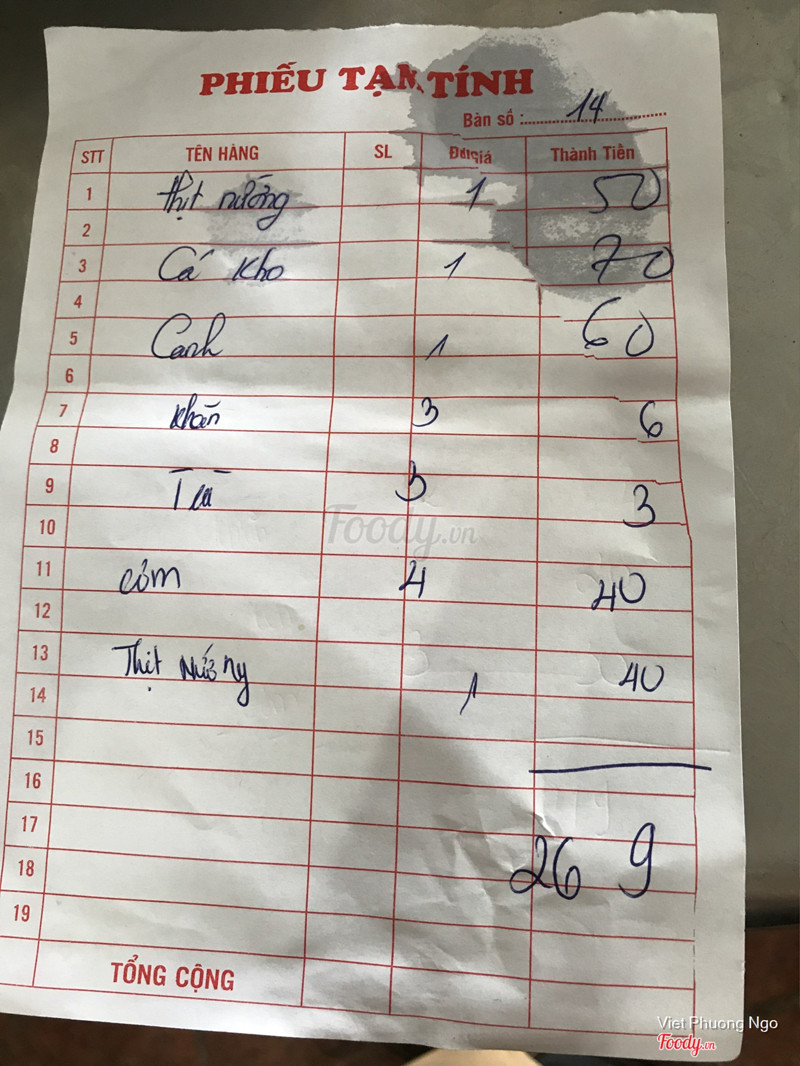 PHIẾU TẠM TÍNH
Bàn số : 14
STT TÊN HÀNG SL Đơn giá Thành Tiền
1 Thịt nướng 1 50
2
3 Cá kho 1 70
4
5 Canh 1 60
6
7 khăn 3 6
8
9 Trà 3 3
10
11 cơm 4 40
12
13 Thịt nướng 1 40
14
15
16
17
18 26 9
19
TỔNG CỘNG
Foody.vn
Viet Phuong Ngo
Foody.vn